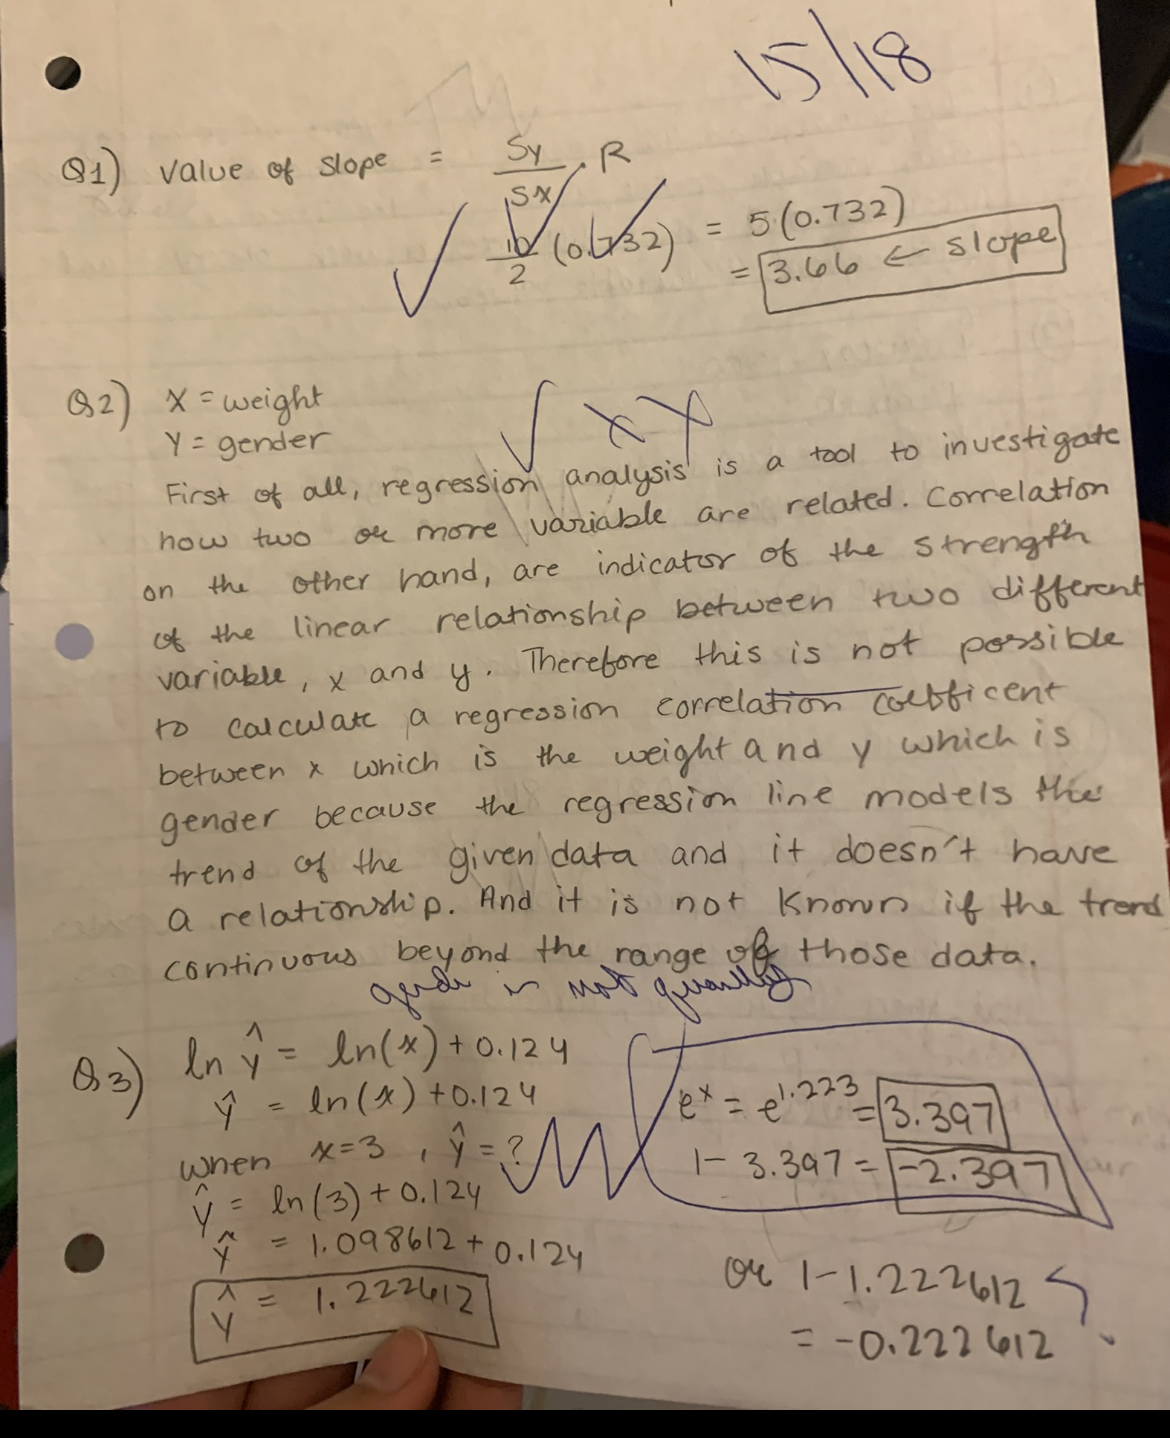 15/18
Q1) Value of slope = Sy/Sx . R
10/2 (0.732) = 5(0.732)
= 3.66 ← slope
Q2) X = weight
Y = gender
First of all, regression analysis is a tool to investigate
how two or more variable are related. Correlation
on the other hand, are indicator of the strength
of the linear relationship between two different
variable, x and y. Therefore this is not possible
to calculate a regression correlation coefficent
between x which is the weight and y which is
gender because the regression line models the
trend of the given data and it doesn't have
a relationship. And it is not known if the trend
continuous beyond the range of those data.
gender is not
Q3) ln ŷ = ln(x) + 0.124
ŷ = ln(x) + 0.124
when x=3, ŷ = ?
ŷ = ln(3) + 0.124
ŷ = 1.098612 + 0.124
ŷ = 1.222612
e^x = e^1.223 = 3.397
1 - 3.397 = -2.397
or 1 - 1.222612
= -0.222612